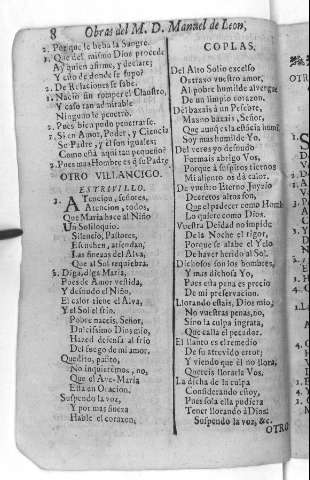 8 Obras del M. D. Manuel de Leon,
2. Porque le beba la Sangre.
1. Que del mismo Dios procede
Ay quien afirme, y declare;
Y año de donde se supo?
2. De Relaciones se sabe.
1. Naciò sin romper el Claustro,
Y caso tan admirable
Ninguno le penetro.
2. Pues bien pudo penetrarse.
1. Si en Amor, Poder, y Ciencia
Se Padre, y èl son iguales;
Como està aqui tan pequeño?
2. Pues una Hombre es q̃ su Padre.
OTRO VILLANCICO.
ESTRIVILLO.
1. ATencion, señores,
Atencion, todos,
Que Maria hace al Niño
Un Soliloquio.
Silencio, Pastores,
Escuchen, atiendan,
Las finezas del Alva,
Que al Sol requiebra.
2. Diga, diga Maria,
Pues de Amor vestida,
Y desnudo el Niño,
El calor tiene el Alva,
Y el Sol el frio.
Pobre naceis, Señor,
Dulcissimo Dios mio,
Hazed defensa al frio
Del fuego de mi amor.
Quedito, pasito,
No inquietèmos, no,
Que el Ave-Maria
Està en Oracion.
Suspenda la voz,
Y por mas fineza
Hable el corazon,
COPLAS.
Del Alto Solio excelso
Os traxo vuestro amor,
Al pobre humilde alvergue
De un limpio corazon.
Dei baxais à un Pesebre,
Mas no baxais, Señor,
Que aunque la estácia humil
Soy mas humilde Yo.
Del veros yo desnudo
Formais abrigo Vos,
Porque à suspiros tiernos
Mi aliento os dà calor.
De vuestro Eterno Juyzio
Decretos altos son,
Que el padecer como Homb
Lo quiere como Dios.
Vuestra Deidad no impide
De la Noche el rigor,
Porque se alabe el Yelo
De haver herido al Sol.
Dichosos son los hombres,
Y mas dichosa Yo,
Pues esta pena es precio
De mi preservacion.
Llorando estais, Dios mio,
No vuestras penas, no,
Sino la culpa ingrata,
Que calla el pecador.
El llanto es el remedio
De su atrevido error;
Y viendo que èl no llora,
Quereis llorarla Vos.
La dicha de la culpa
Considerando estoy,
Pues sola ella pudiera
Tener llorando à Dios.
Suspenda la voz, &c.
OTRO